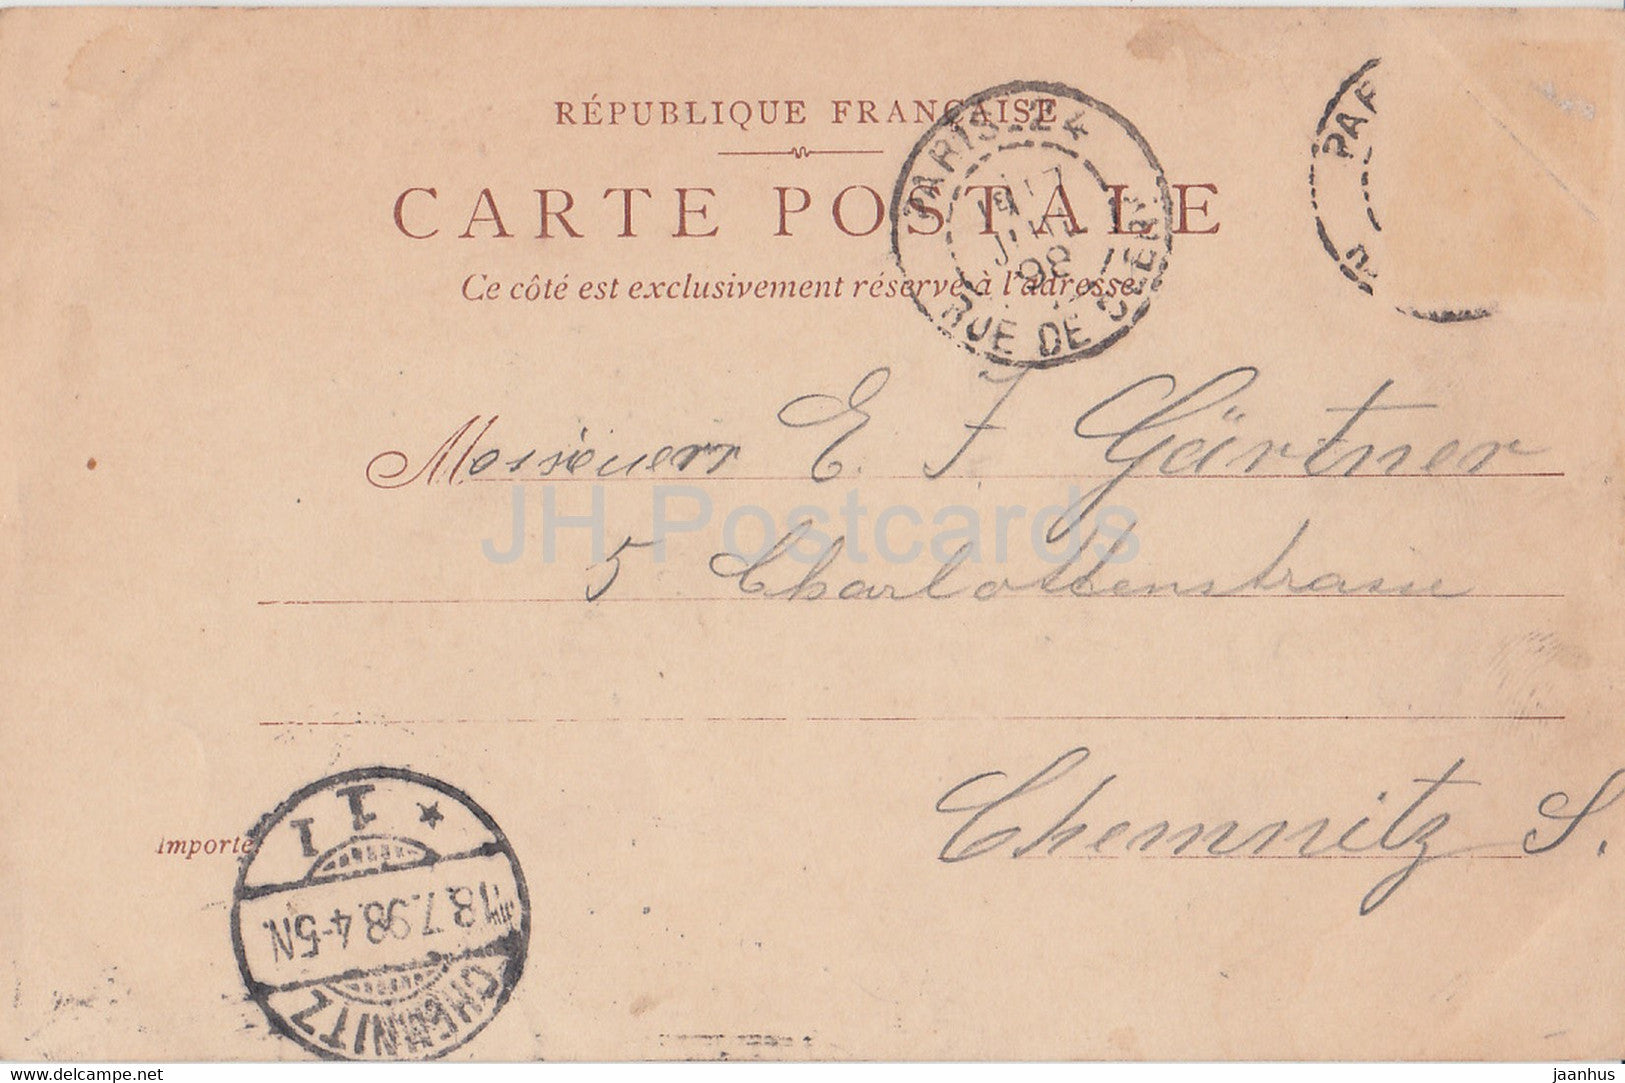 RÉPUBLIQUE FRANÇAISE
CARTE POSTALE
Ce côté est exclusivement réservé à l'adresse
PARIS_24
17
JUIL
98
RUE DE CLERY
PAR
R
Monsieuers E. F Gärtner
5 Charlottenstrasse
Chemnitz S.
Importé
CHEMNITZ
18.7.98.4-5N.
1 1 *
JH Postcards
www.delcampe.net
jaanhus